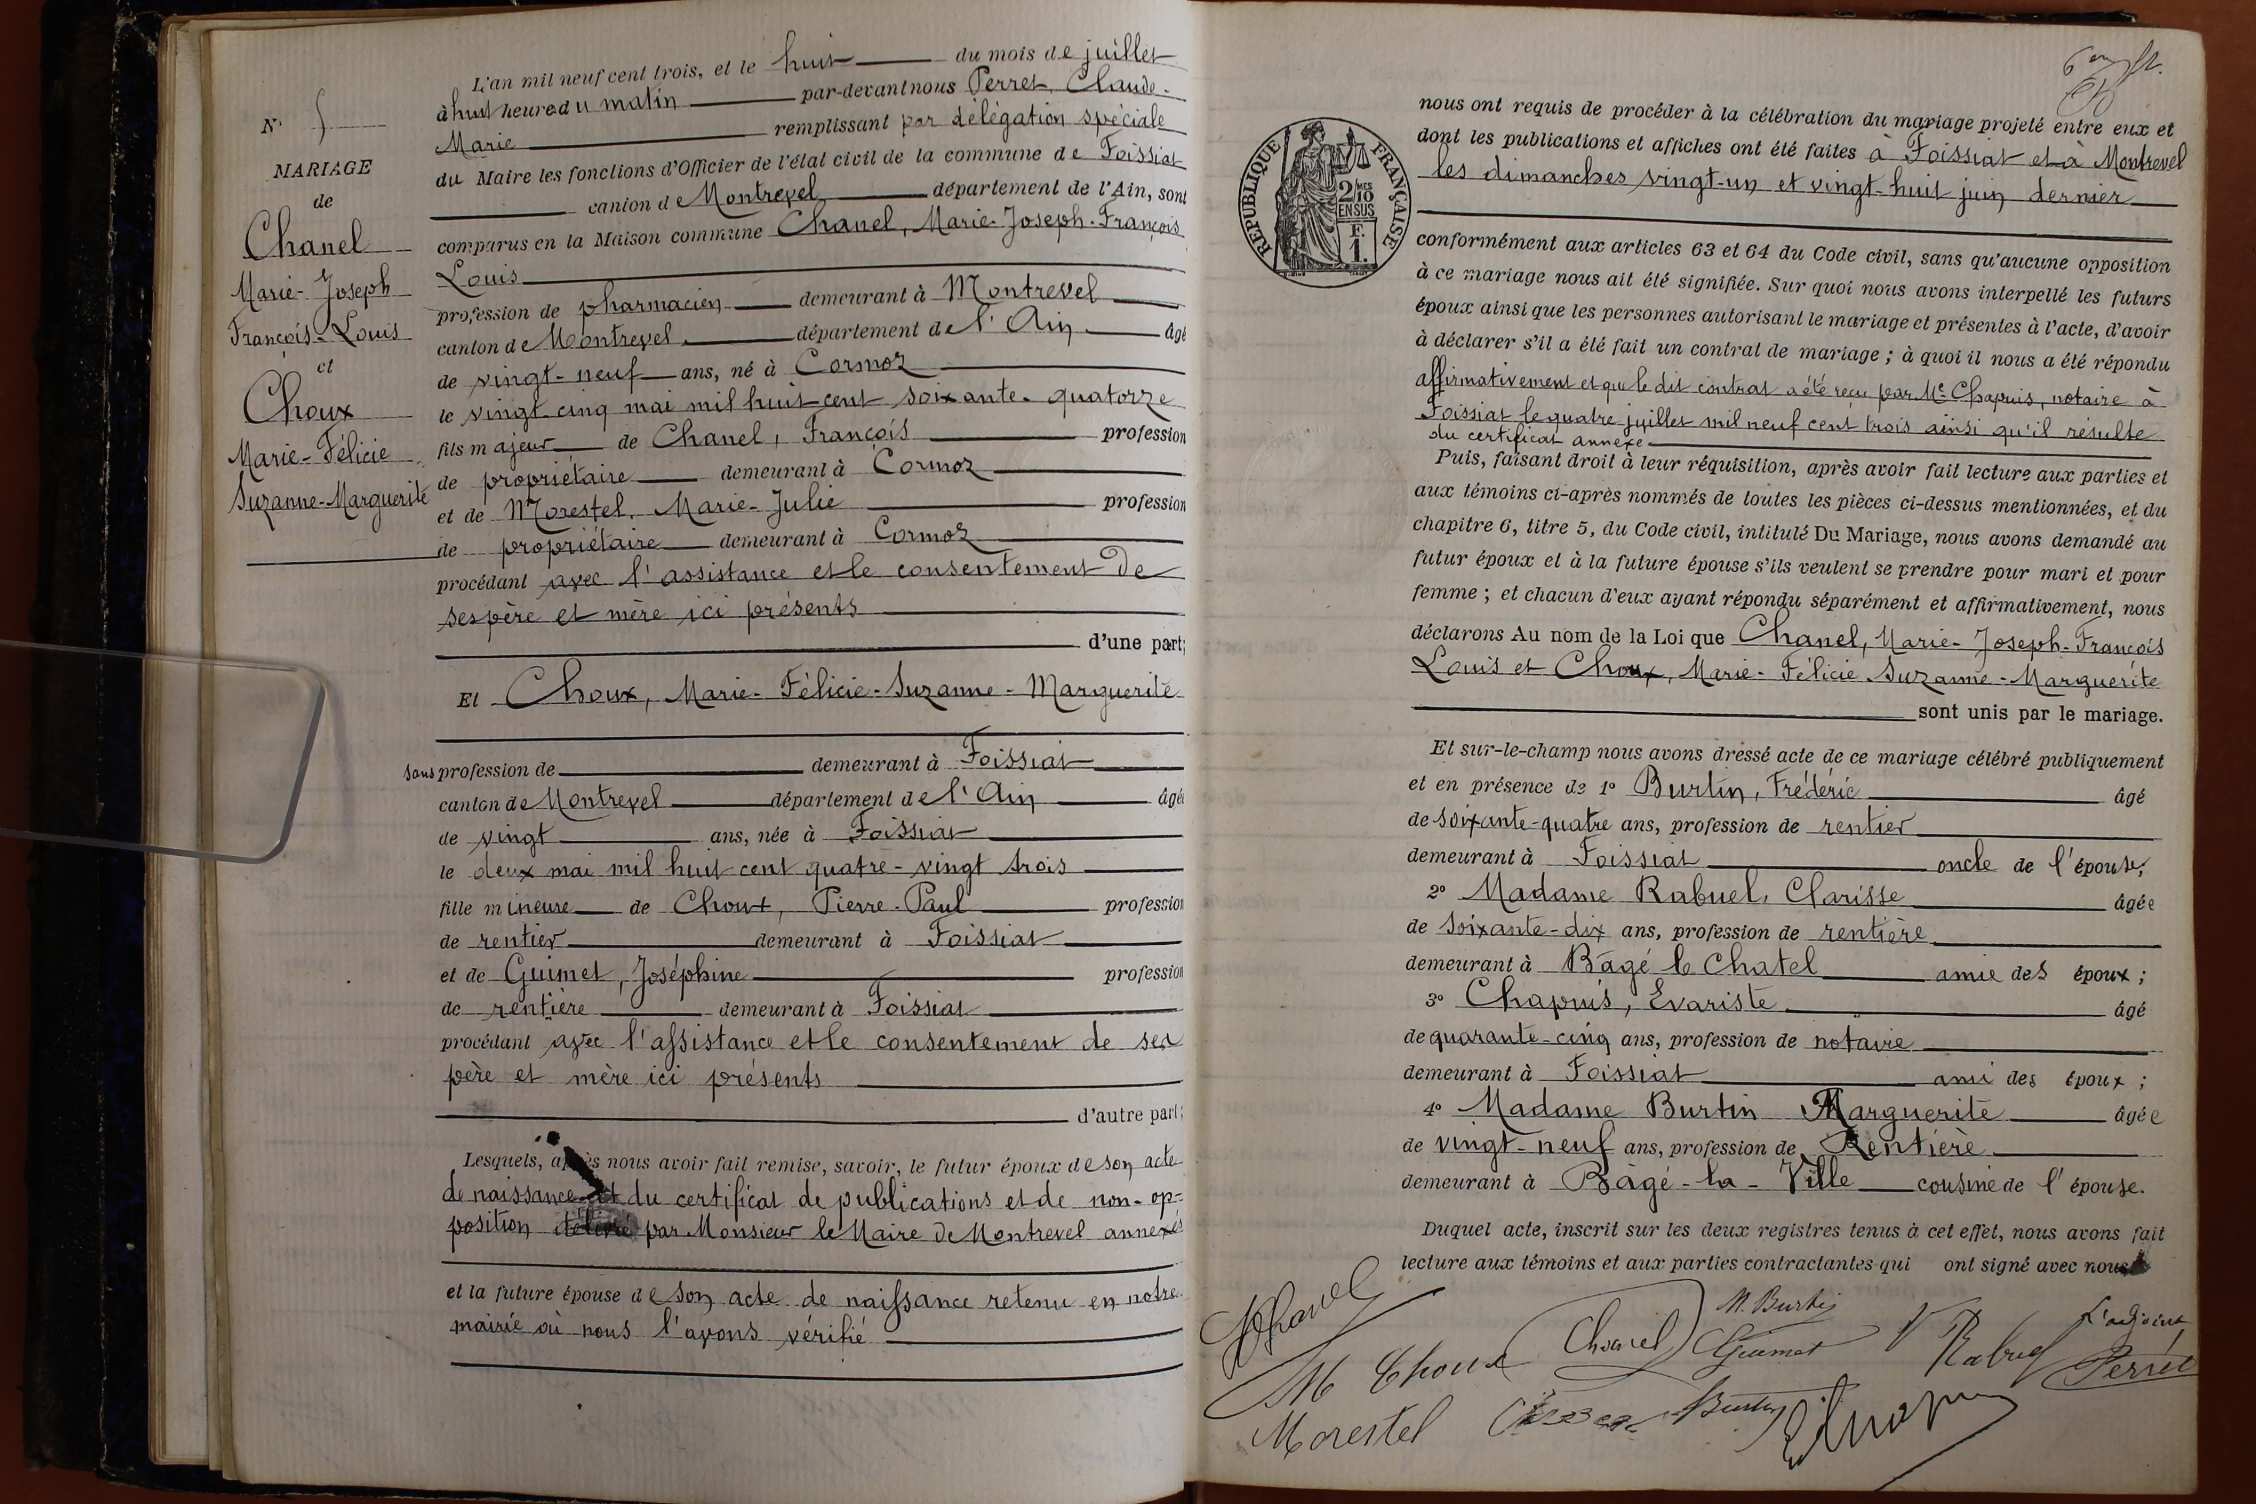 L'an mil neuf cent trois, et le huit du mois de juillet
à huit heures du matin par-devant nous Perret, Claude-
Marie remplissant par délégation spéciale
du Maire les fonctions d'Officier de l'état civil de la commune de Foissiat
canton de Montrevel département de l'Ain, sont
comparus en la Maison commune Chanel, Marie-Joseph-François
Louis
profession de pharmacien demeurant à Montrevel
canton de Montrevel département de l'Ain âgé
de vingt-neuf ans, né à Cormoz
le vingt cinq mai mil huit cent soixante-quatorze
fils majeur de Chanel, François profession
de propriétaire demeurant à Cormoz
et de Morestel, Marie-Julie profession
de propriétaire demeurant à Cormoz
procédant avec l'assistance et le consentement de
ses père et mère ici présents
d'une part;
Et Choux, Marie-Félicie-Suzanne-Marguerite
sans profession de demeurant à Foissiat
canton de Montrevel département de l'Ain âgée
de vingt ans, née à Foissiat
le deux mai mil huit cent quatre-vingt trois
fille mineure de Choux, Pierre-Paul profession
de rentier demeurant à Foissiat
et de Guimet, Joséphine profession
de rentière demeurant à Foissiat
procédant avec l'assistance et le consentement de ses
père et mère ici présents
d'autre part;
Lesquels, après nous avoir fait remise, savoir, le futur époux de son acte
de naissance et du certificat de publications et de non-op-
position délivré par Monsieur le Maire de Montrevel annexés
et la future épouse de son acte de naissance retenu en notre
mairie où nous l'avons vérifié
N°
MARIAGE
de
Chanel
Marie-Joseph
François-Louis
et
Choux
Marie-Félicie
Suzanne-Marguerite
RÉPUBLIQUE FRANÇAISE
2/10MES
EN SUS
F.
1.
nous ont requis de procéder à la célébration du mariage projeté entre eux et
dont les publications et affiches ont été faites à Foissiat et à Montrevel
les dimanches vingt-un et vingt-huit juin dernier
conformément aux articles 63 et 64 du Code civil, sans qu'aucune opposition
à ce mariage nous ait été signifiée. Sur quoi nous avons interpellé les futurs
époux ainsi que les personnes autorisant le mariage et présentes à l'acte, d'avoir
à déclarer s'il a été fait un contrat de mariage; à quoi il nous a été répondu
affirmativement et que le dit contrat a été reçu par Me Chapuis, notaire à
Foissiat le quatre juillet mil neuf cent trois ainsi qu'il résulte
du certificat annexe
Puis, faisant droit à leur réquisition, après avoir fait lecture aux parties et
aux témoins ci-après nommés de toutes les pièces ci-dessus mentionnées, et du
chapitre 6, titre 5, du Code civil, intitulé Du Mariage, nous avons demandé au
futur époux et à la future épouse s'ils veulent se prendre pour mari et pour
femme; et chacun d'eux ayant répondu séparément et affirmativement, nous
déclarons Au nom de la Loi que Chanel, Marie-Joseph-François
Louis et Choux, Marie-Félicie Suzanne-Marguerite
sont unis par le mariage.
Et sur-le-champ nous avons dressé acte de ce mariage célébré publiquement
et en présence de 1° Burtin, Frédéric âgé
de soixante-quatre ans, profession de rentier
demeurant à Foissiat oncle de l'épouse;
2° Madame Rabuel, Clarisse âgée
de soixante-dix ans, profession de rentière
demeurant à Bâgé le Chatel amie des époux;
3° Chapuis, Evariste âgé
de quarante-cinq ans, profession de notaire
demeurant à Foissiat ami des époux;
4° Madame Burtin Marguerite âgée
de vingt-neuf ans, profession de Rentière
demeurant à Bâgé-la-Ville cousine de l'épouse.
Duquel acte, inscrit sur les deux registres tenus à cet effet, nous avons fait
lecture aux témoins et aux parties contractantes qui ont signé avec nous
Chanel
M. Burtin
L'adjoint
M Choux
Chanel
Guimet
Rabuel
Perret
Morestel
Burtin